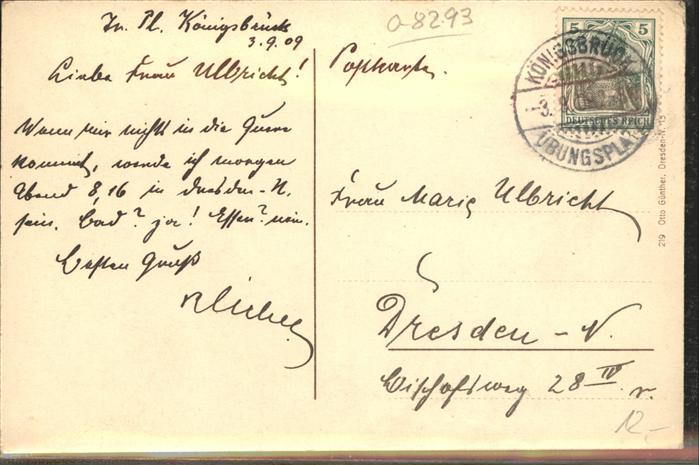 Tr. Pl. Königsbrück
3.9.09
Liebe Frau Ulbricht!
Wenn mir nichts in die Quere
kommt, werde ich morgen
Abend 8,16 in Dresden-N.
sein. Bad? ja! Essen? nein.
Besten Gruß
a-8293
Postkarte.
Frau Marie Ulbricht
Dresden-N.
Bischofsweg 28 IV r.
12,-
5 5
DEUTSCHES REICH
KÖNIGSBRÜCK
3.
ÜBUNGSPLATZ
219 Otto Günther, Dresden-N. 15